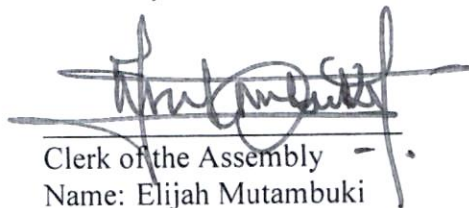 Clerk of the Assembly
Name: Elijah Mutambuki